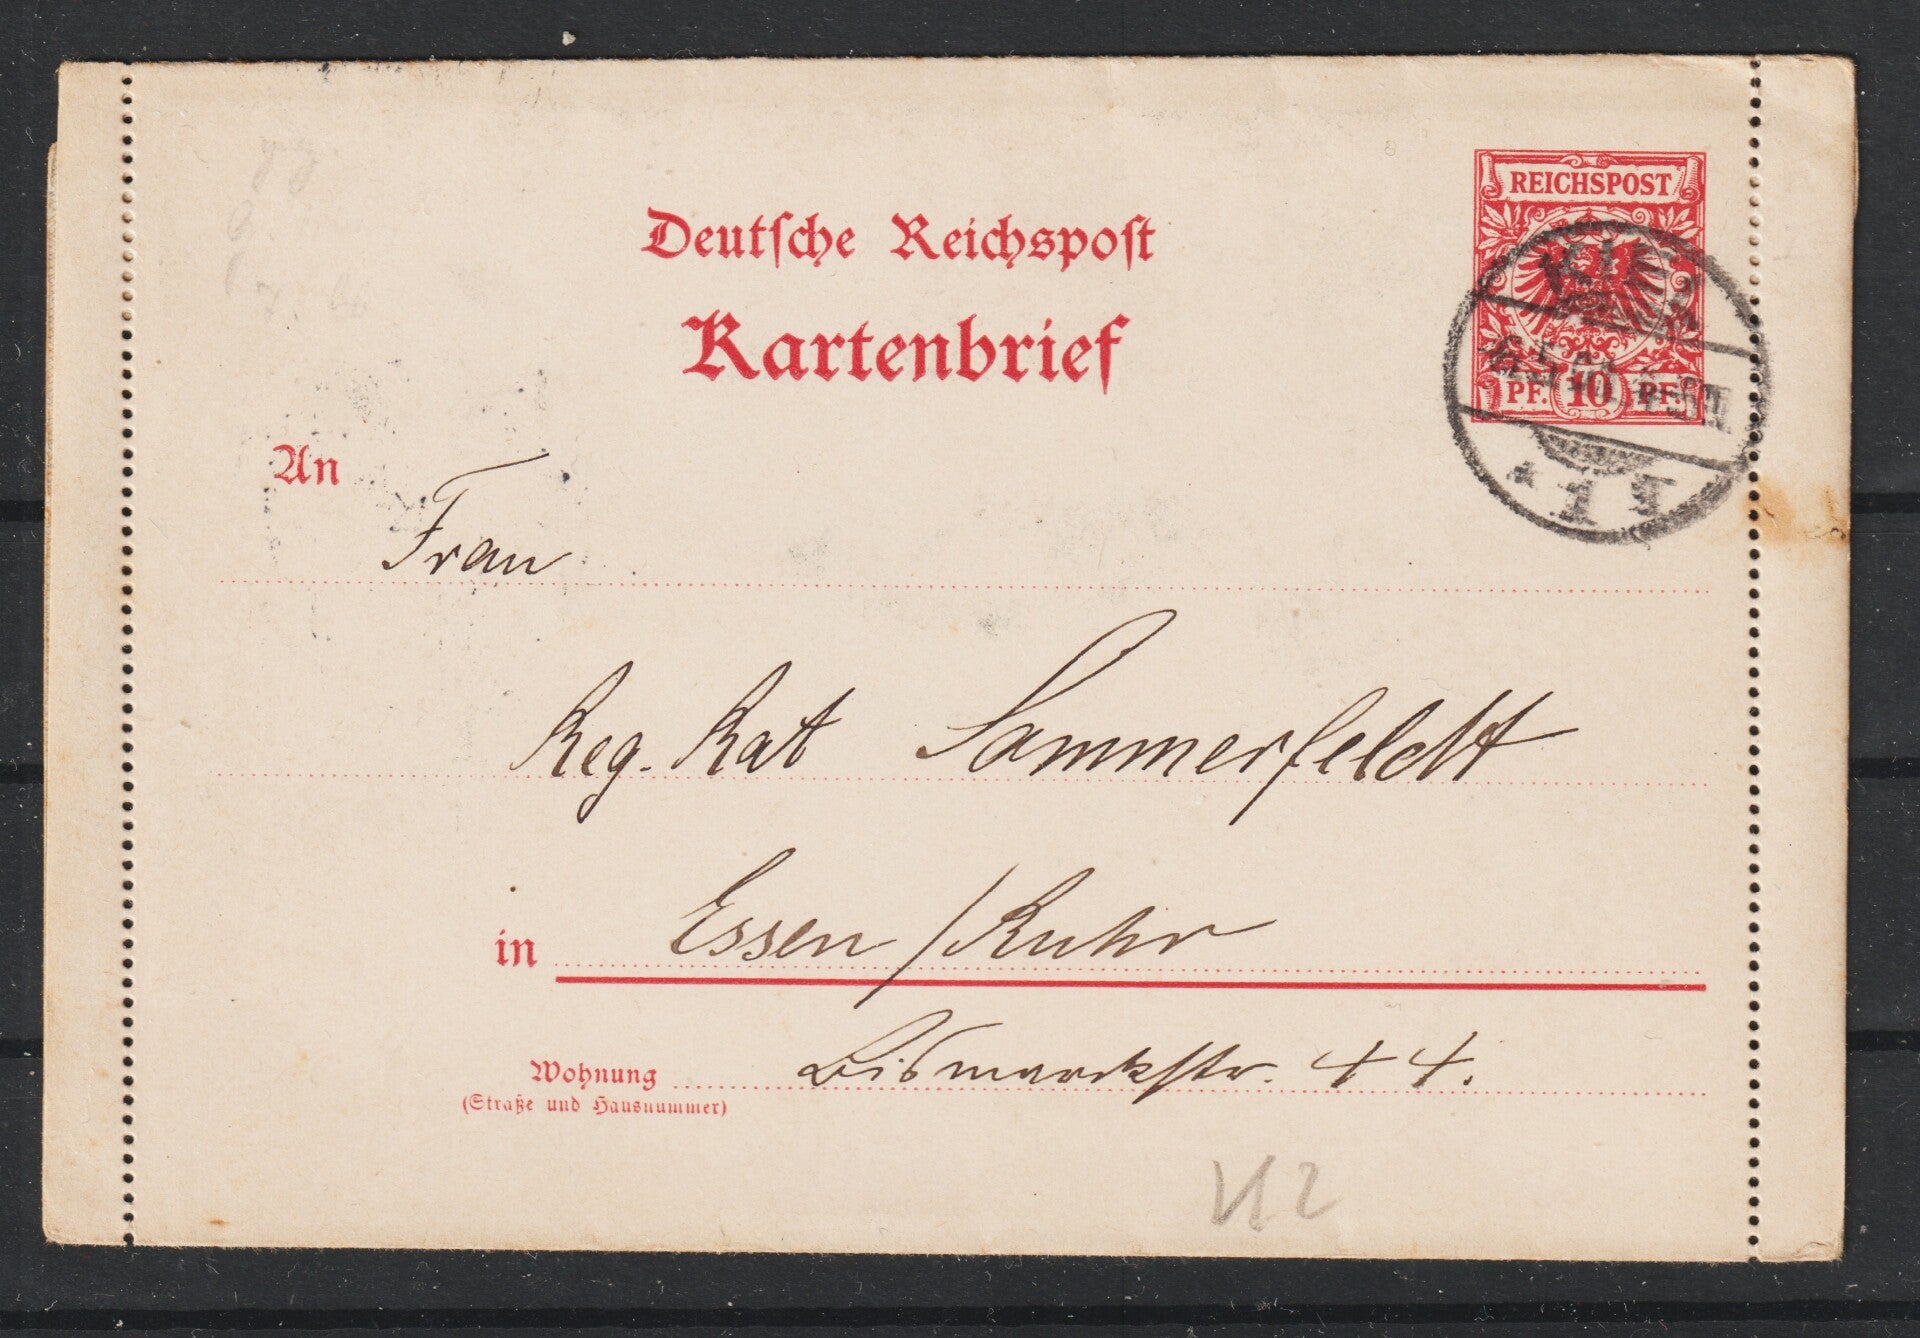 REICHSPOST
PF. 10 PF.
Deutsche Reichspost
Kartenbrief
An
Frau
Reg. Rat Sommerfeldt
in Essen / Ruhr
Wohnung Bismarckstr. 44.
(Straße und Hausnummer)